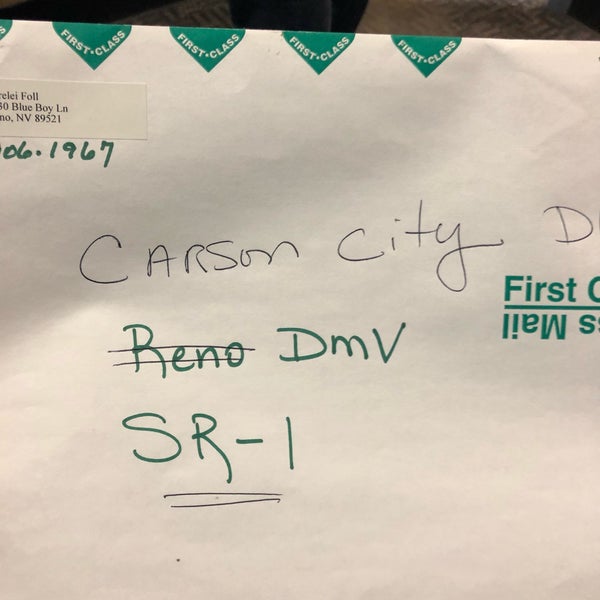 FIRST-CLASS FIRST-CLASS FIRST-CLASS FIRST-CLASS
relei Foll
30 Blue Boy Ln
no, NV 89521
06.1967
Carson City D
First C
ss Mail
Reno DMV
SR-1